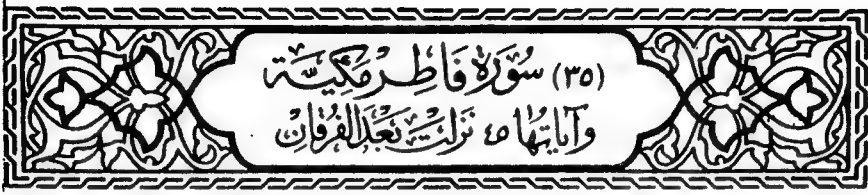 (٣٥) سُورَة فَاطِر مَكِيَّة
وَآيَاتُهَا ٤٥ نَزَلَتْ بَعْدَ الفُرْقَانِ